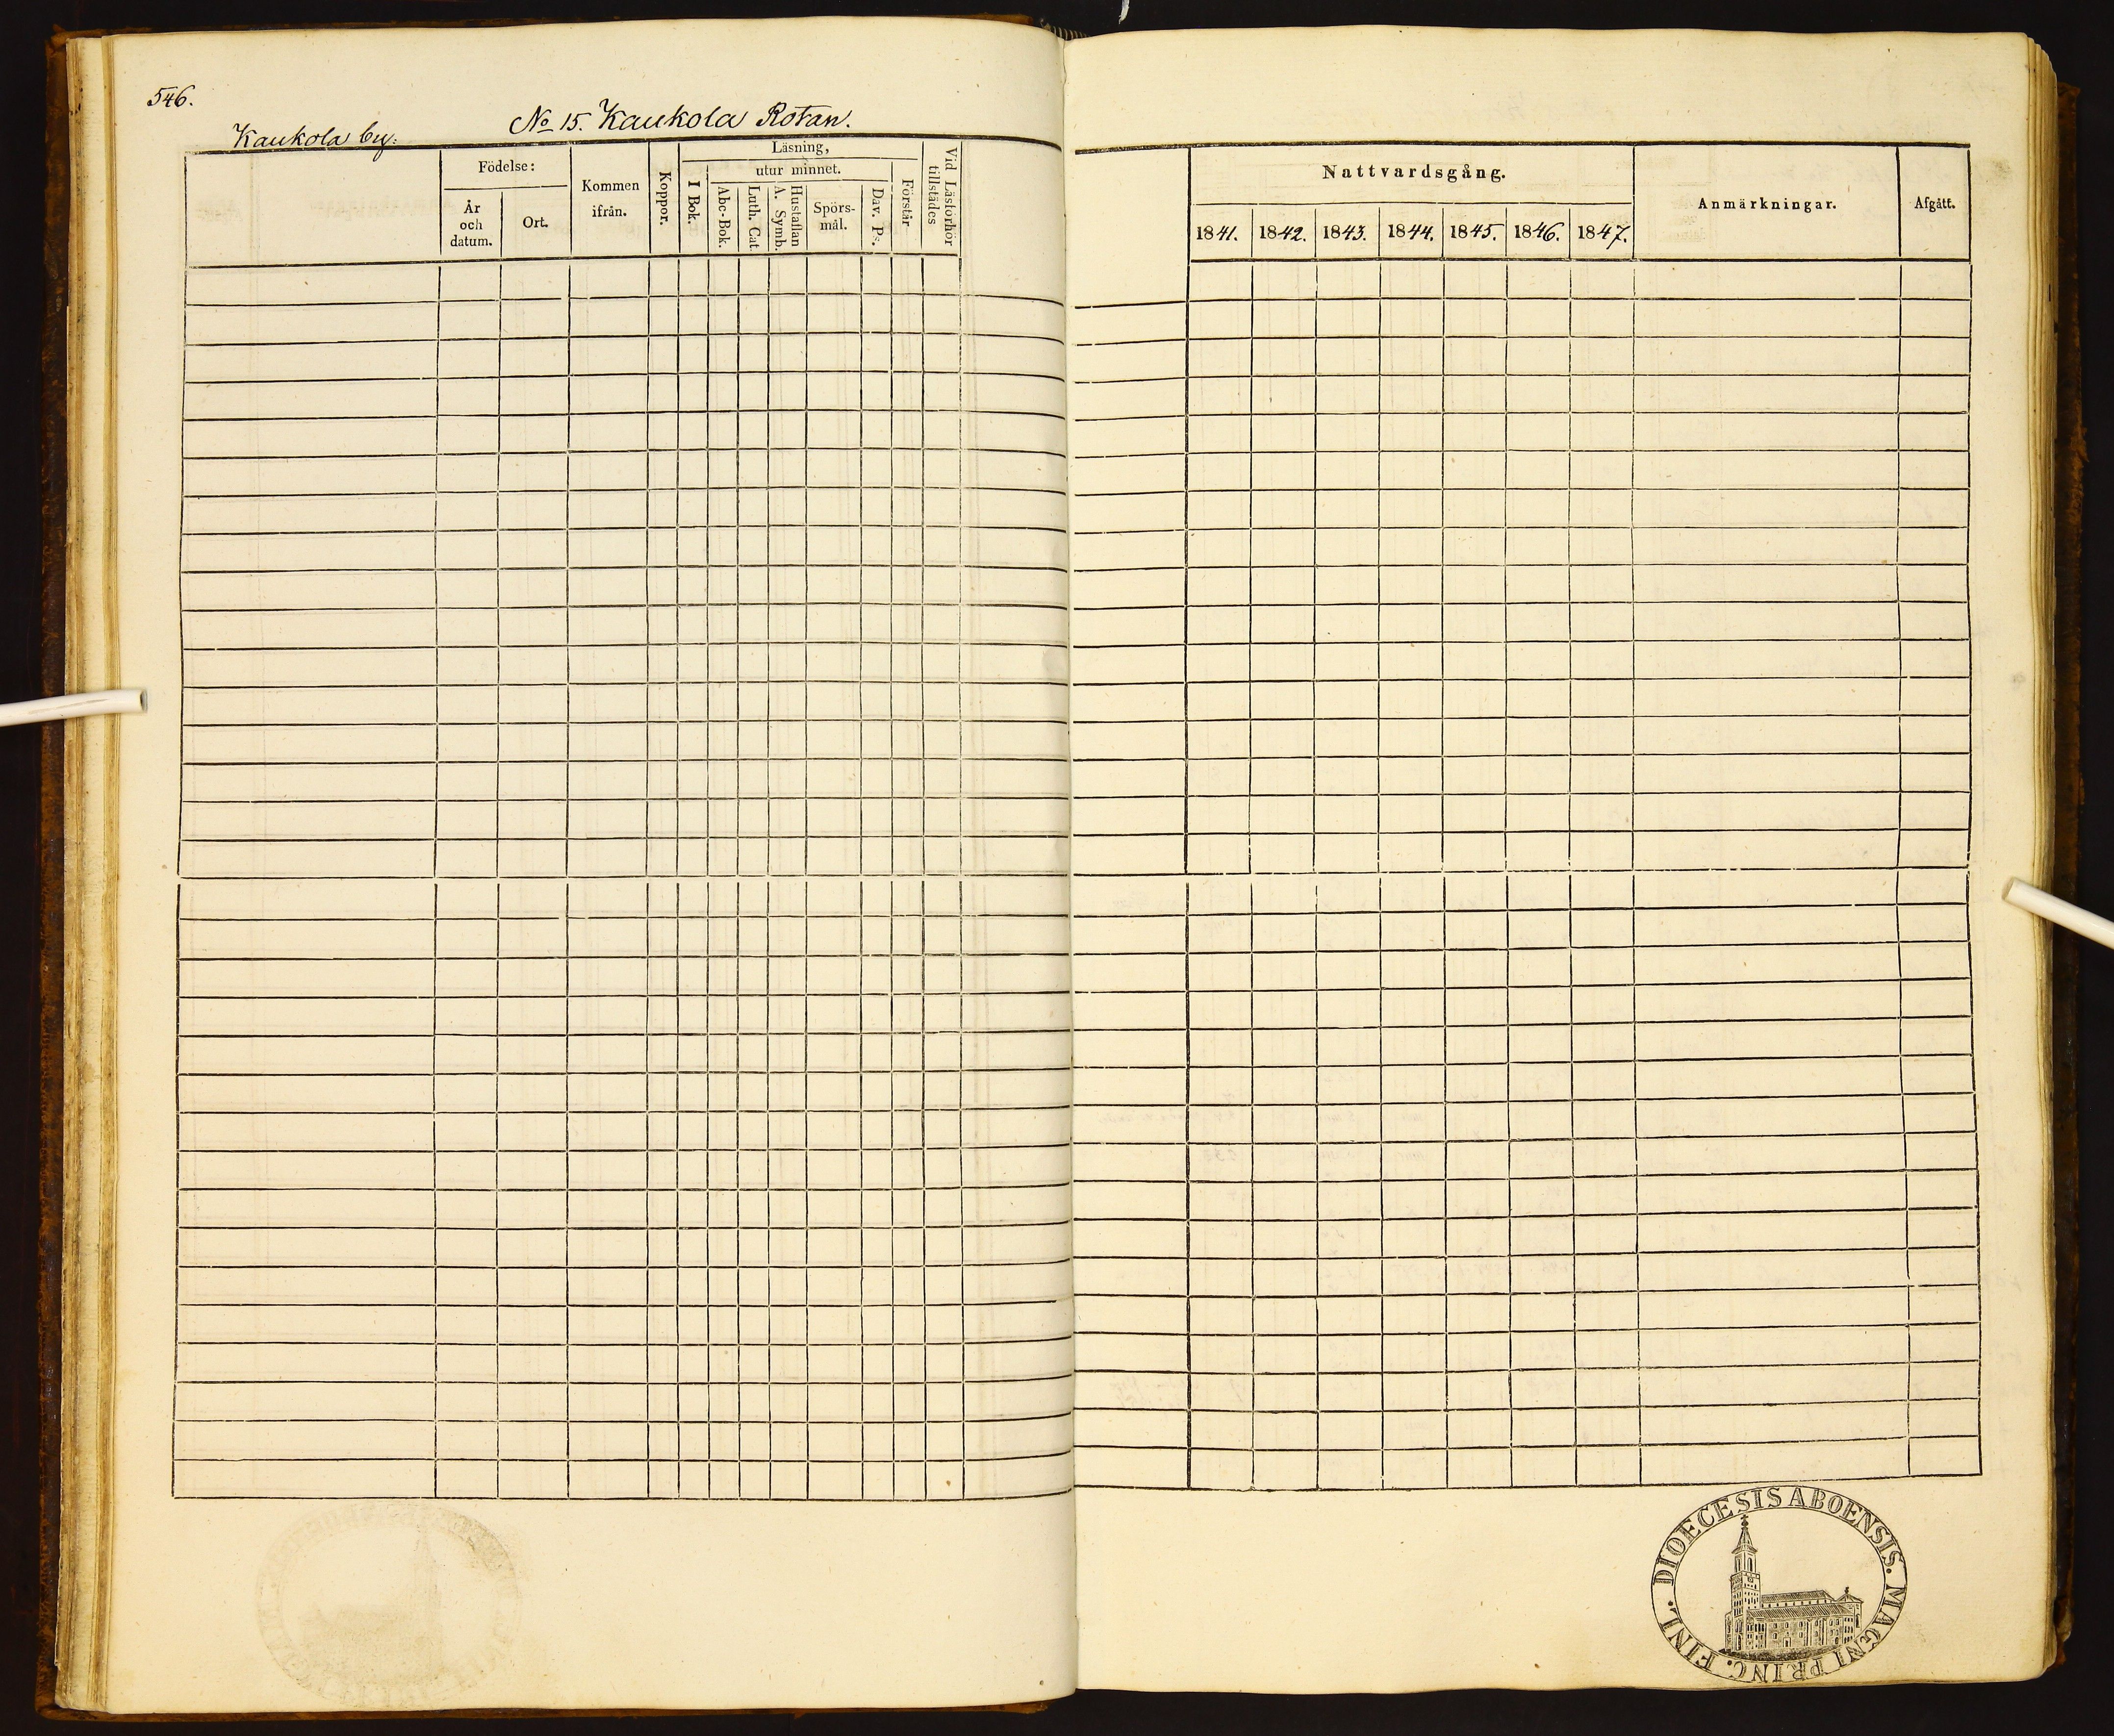 546.
No 15. Kaukola Rotan.
Kaukola by:
Födelse:
År
och
datum.
Ort.
Kommen
ifrån.
Koppor.
Läsning,
I Bok.
utur minnet.
Abc-Bok.
Luth. Cat.
Hustaflan
A. Symb.
Spörs-
mål.
Dav. Ps.
Förstår
Vid Läsförhör
tillstädes
Nattvardsgång.
1841. 1842. 1843. 1844. 1845. 1846. 1847.
Anmärkningar.
Afgått.
DIOECESIS ABOENSIS. MAGNI PRINC. FINL.